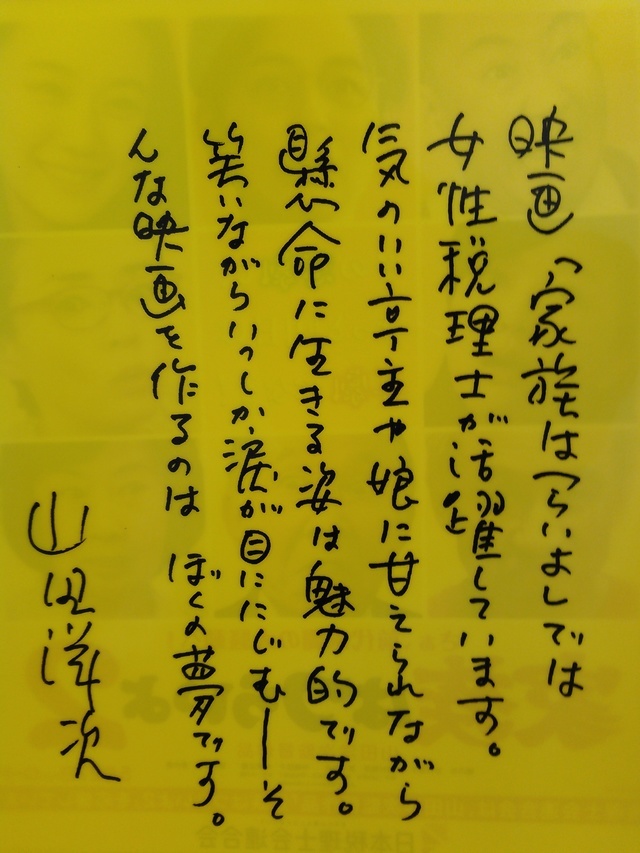 映画「家族はつらいよ」では
女性税理士が活躍しています。
気のいい亭主や娘に甘えられながら
懸命に生きる姿は魅力的です。
笑いながらいつしか涙が目ににじむーそ
んな映画を作るのは ぼくの夢です。
山田洋次
日本税理士会連合会